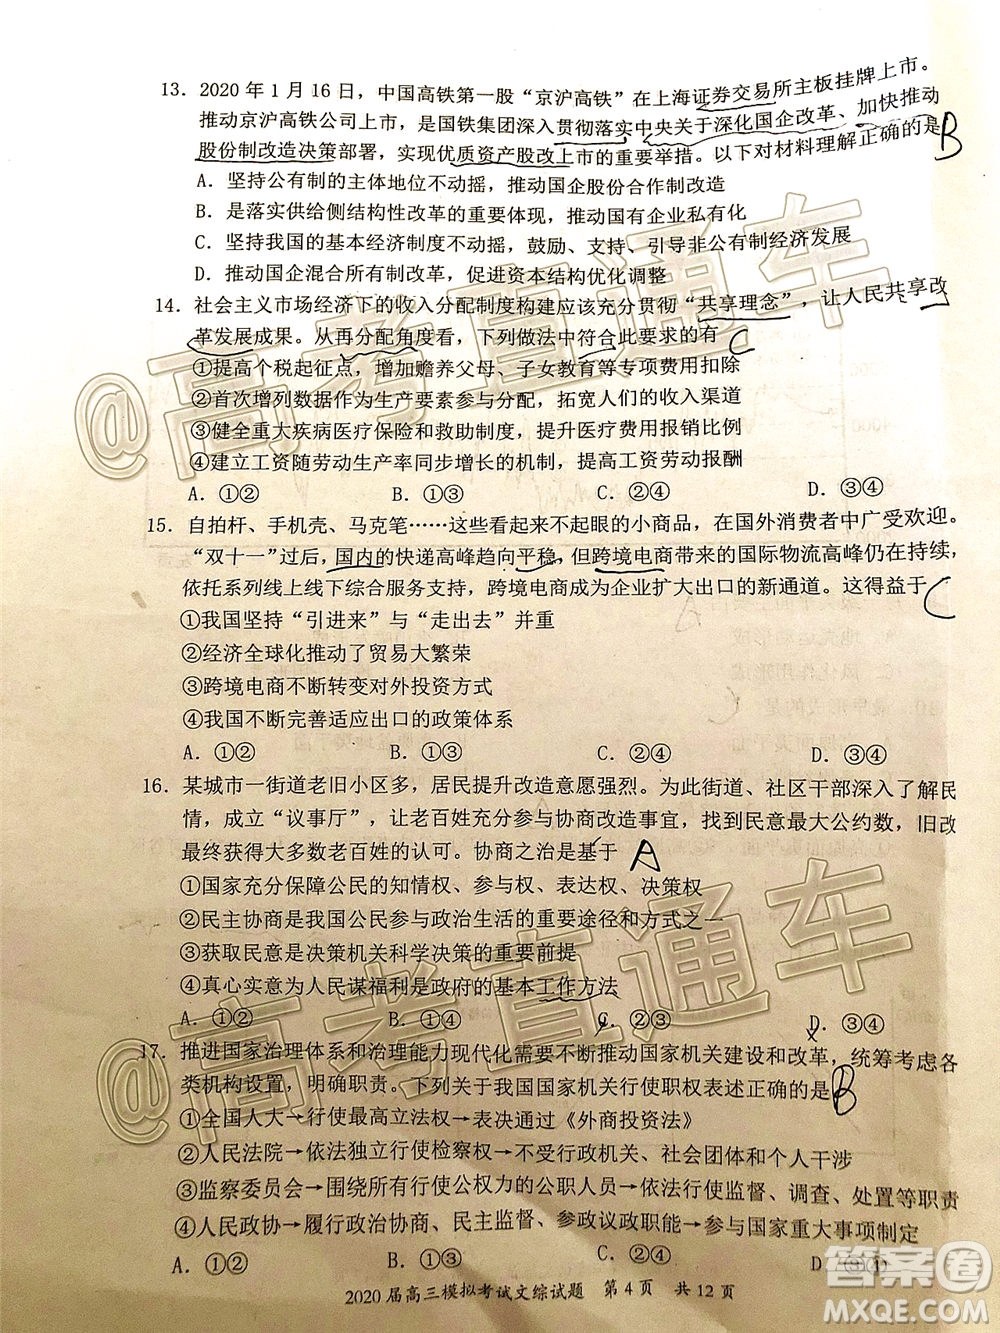 13. 2020 年 1 月 16 日，中国高铁第一股“京沪高铁”在上海证券交易所主板挂牌上市。
推动京沪高铁公司上市，是国铁集团深入贯彻落实中央关于深化国企改革、加快推动
股份制改造决策部署，实现优质资产股改上市的重要举措。以下对材料理解正确的是 B
A．坚持公有制的主体地位不动摇，推动国企股份合作制改造
B．是落实供给侧结构性改革的重要体现，推动国有企业私有化
C．坚持我国的基本经济制度不动摇，鼓励、支持、引导非公有制经济发展
D．推动国企混合所有制改革，促进资本结构优化调整
14. 社会主义市场经济下的收入分配制度构建应该充分贯彻“共享理念”，让人民共享改
革发展成果。从再分配角度看，下列做法中符合此要求的有 C
①提高个税起征点，增加赡养父母、子女教育等专项费用扣除
②首次增列数据作为生产要素参与分配，拓宽人们的收入渠道
③健全重大疾病医疗保险和救助制度，提升医疗费用报销比例
④建立工资随劳动生产率同步增长的机制，提高工资劳动报酬
A．①② B．①③ C．②④ D．③④
15. 自拍杆、手机壳、马克笔……这些看起来不起眼的小商品，在国外消费者中广受欢迎。
“双十一”过后，国内的快递高峰趋向平稳，但跨境电商带来的国际物流高峰仍在持续，
依托系列线上线下综合服务支持，跨境电商成为企业扩大出口的新通道。这得益于 C
①我国坚持“引进来”与“走出去”并重
②经济全球化推动了贸易大繁荣
③跨境电商不断转变对外投资方式
④我国不断完善适应出口的政策体系
A．①② B．①③ C．②④ D．③④
16. 某城市一街道老旧小区多，居民提升改造意愿强烈。为此街道、社区干部深入了解民
情，成立“议事厅”，让老百姓充分参与协商改造事宜，找到民意最大公约数，旧改
最终获得大多数老百姓的认可。协商之治是基于 A
①国家充分保障公民的知情权、参与权、表达权、决策权
②民主协商是我国公民参与政治生活的重要途径和方式之一
③获取民意是决策机关科学决策的重要前提
④真心实意为人民谋福利是政府的基本工作方法
A．①② B．①③ C．②④ D．③④
17. 推进国家治理体系和治理能力现代化需要不断推动国家机关建设和改革，统筹考虑各
类机构设置，明确职责。下列关于我国国家机关行使职权表述正确的是 B
①全国人大→行使最高立法权→表决通过《外商投资法》
②人民法院→依法独立行使检察权→不受行政机关、社会团体和个人干涉
③监察委员会→围绕所有行使公权力的公职人员→依法行使监督、调查、处置等职责
④人民政协→履行政治协商、民主监督、参政议政职能→参与国家重大事项制定
A．①② B．①③ C．②④ D．③④
2020 届高三模拟考试文综试题 第 4 页 共 12 页
@高考直通车
@高考直通车
答案圈
MXQE.COM